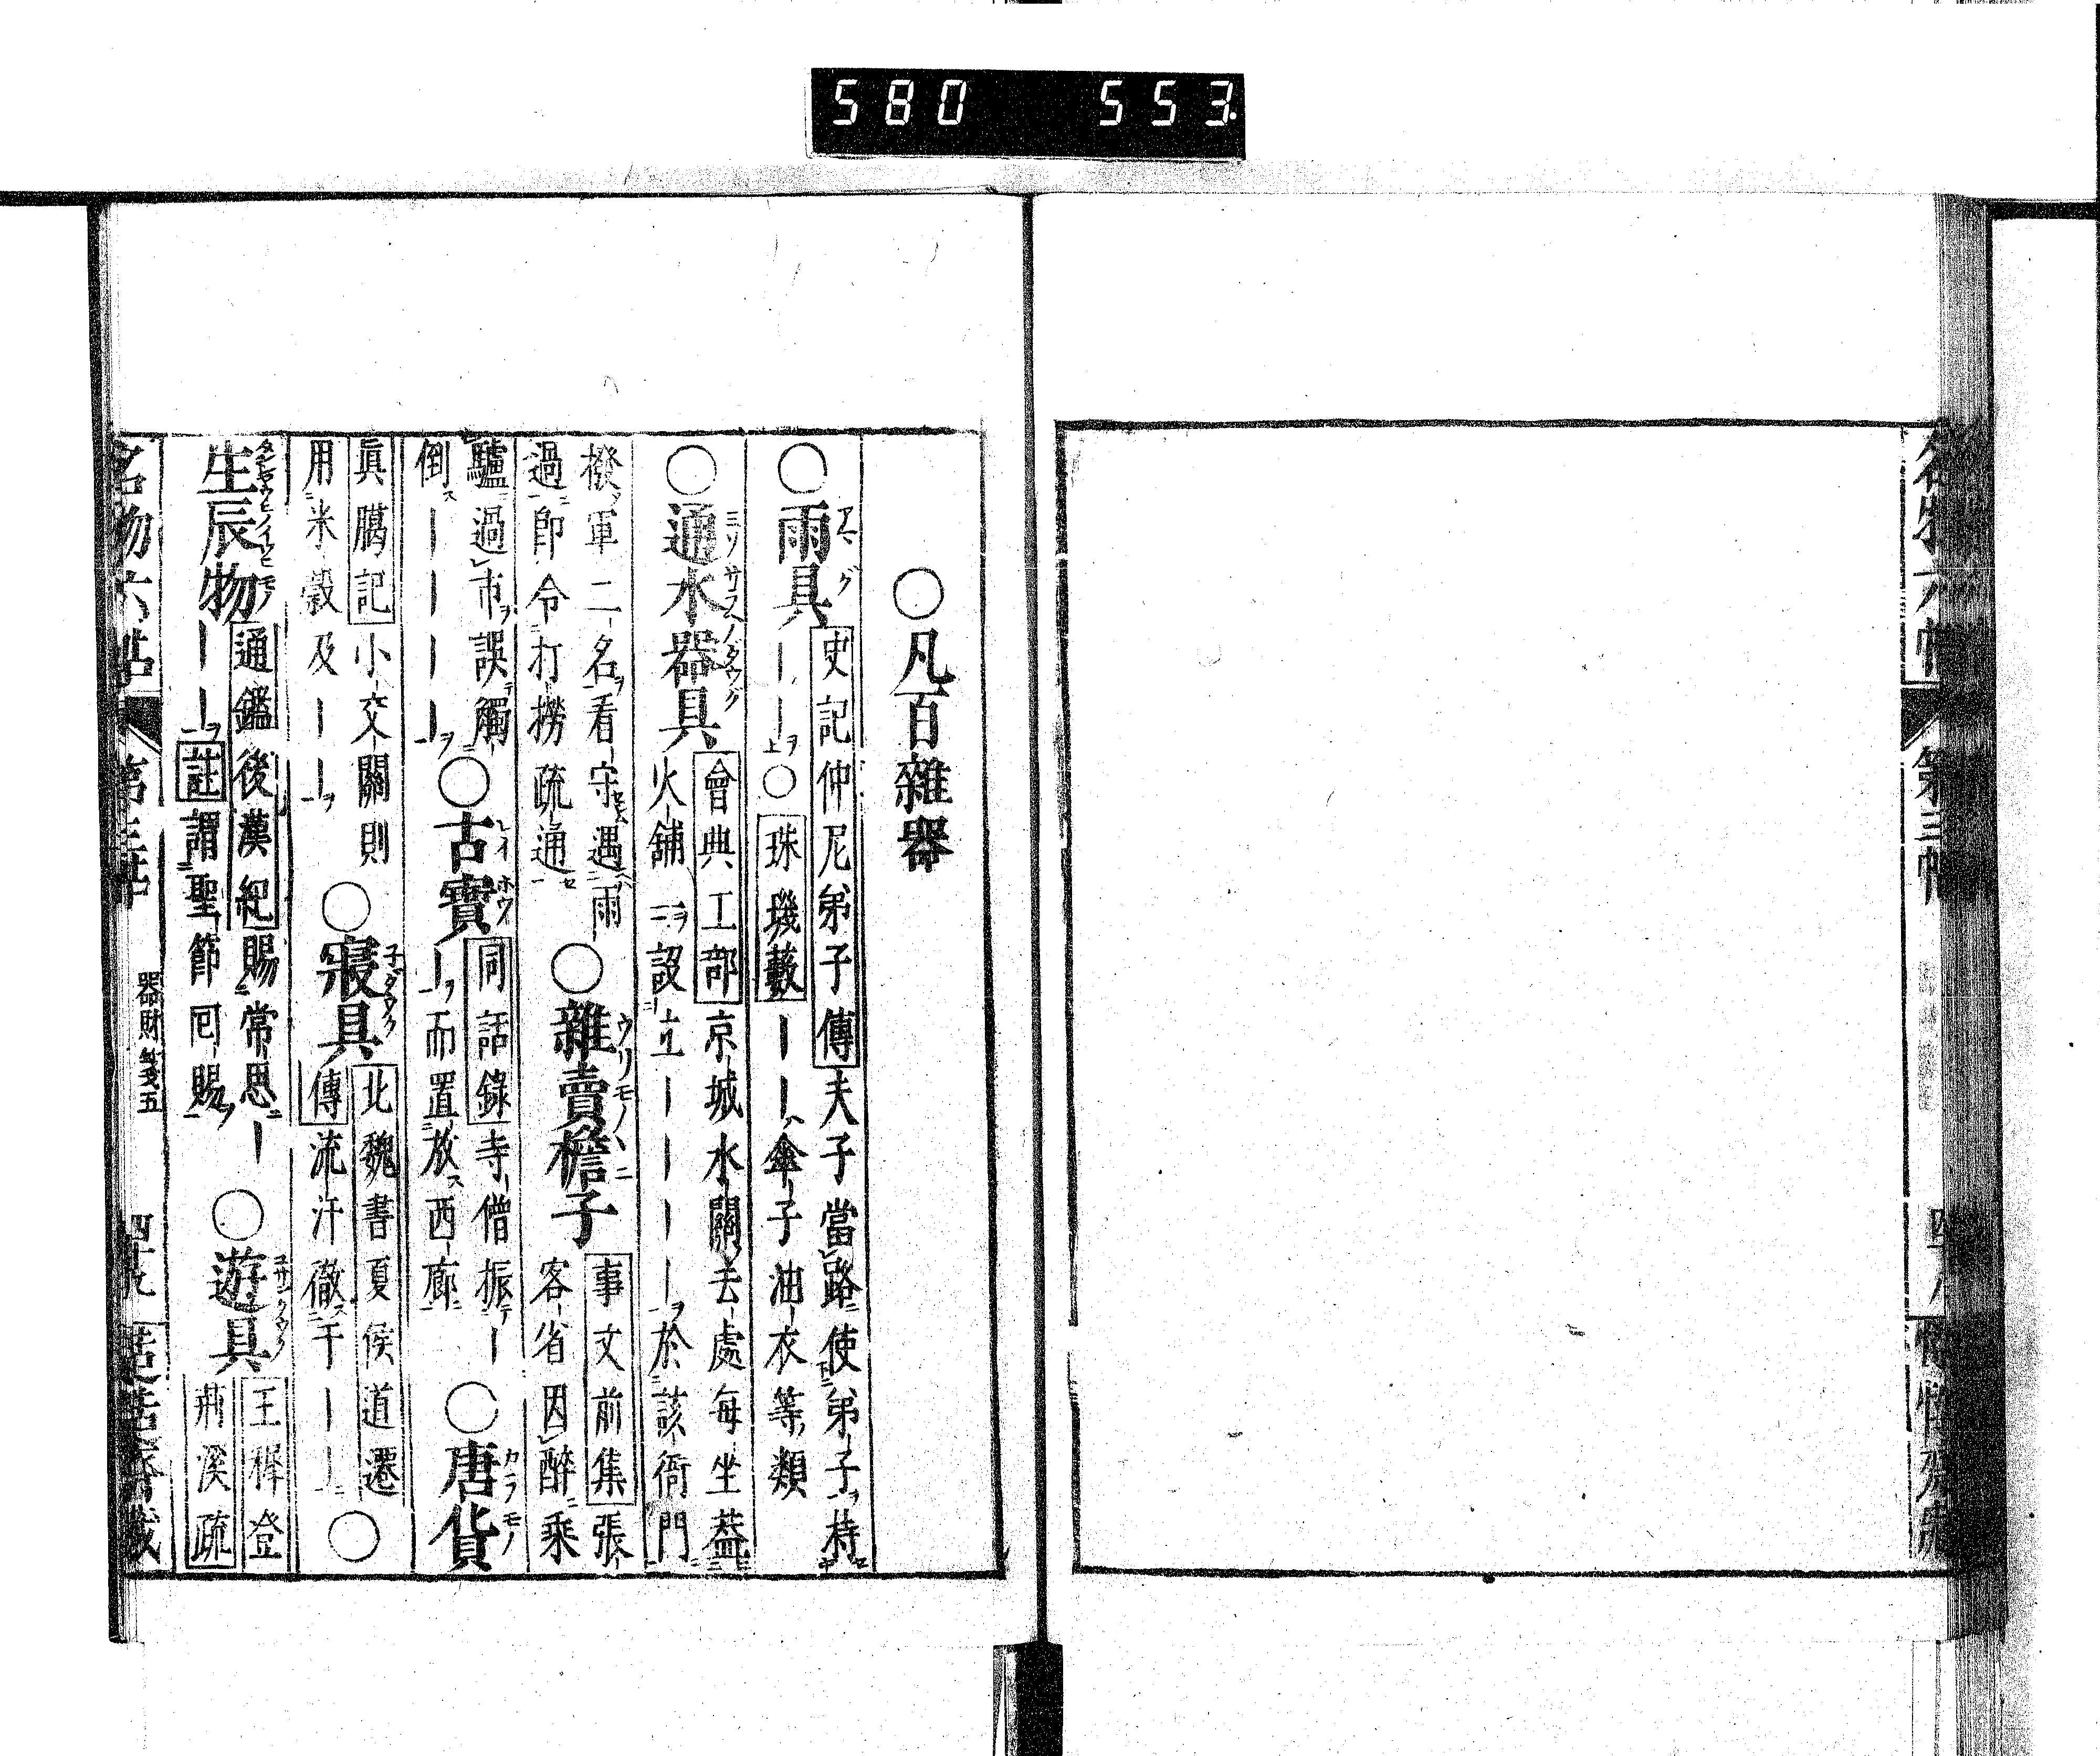 580 553.
名物六帖 第三帖
〇凡百雜器
〇雨具 史記仲尼弟子傳夫子當路使弟子持
アマグ
――上〇珠璣藪――傘子油衣等類
〇通水器具 會典工部京城水關去處每坐葢
火鋪一設立――――於該衙門
撥軍二名看守遇雨
過即令打撈疏通
〇雜賣檐子 事文前集張
客省因醉乘
驢過市誤觸
倒――――
〇古寶 同話錄寺僧振―
―而置放西廊
〇唐貨
カラモノ
眞臈記小交關則
用米穀及――
〇寢具 北魏書夏侯道遷
傳流汗徹于――
〇
生辰物 通鑑後漢紀賜常思―
――註謂聖節回賜
〇遊具 王穉登
荊溪疏
名物六帖 第三帖 器財箋五 四十九